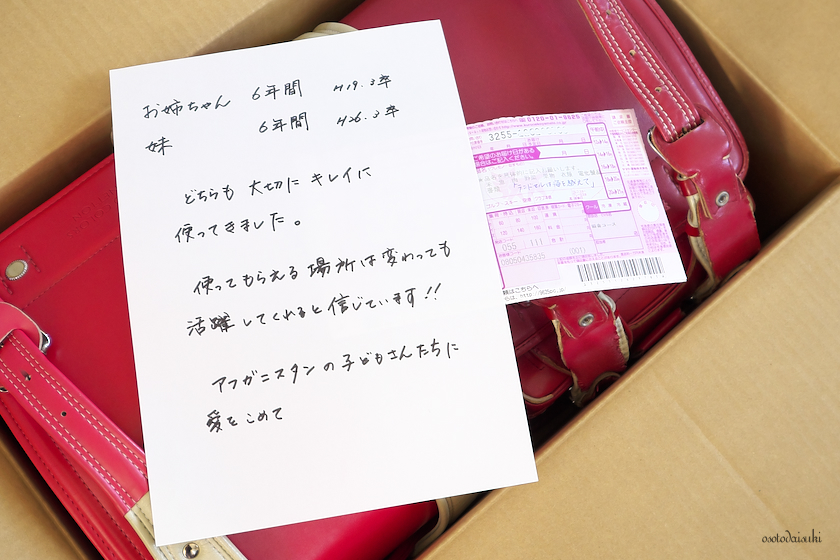 お姉ちゃん 6年間 H19.3卒
妹 6年間 H26.3卒
どちらも 大切に キレイに
使ってきました。
使ってもらえる場所は変わっても
活躍してくれると信じています!!
アフガニスタンの子どもさんたちに
愛をこめて
0120-01-9625
3255-
希望のお届け日がある
場合はご記入ください。
「ランドセルは海を越えて」
クール
055 111
osotodaisuki